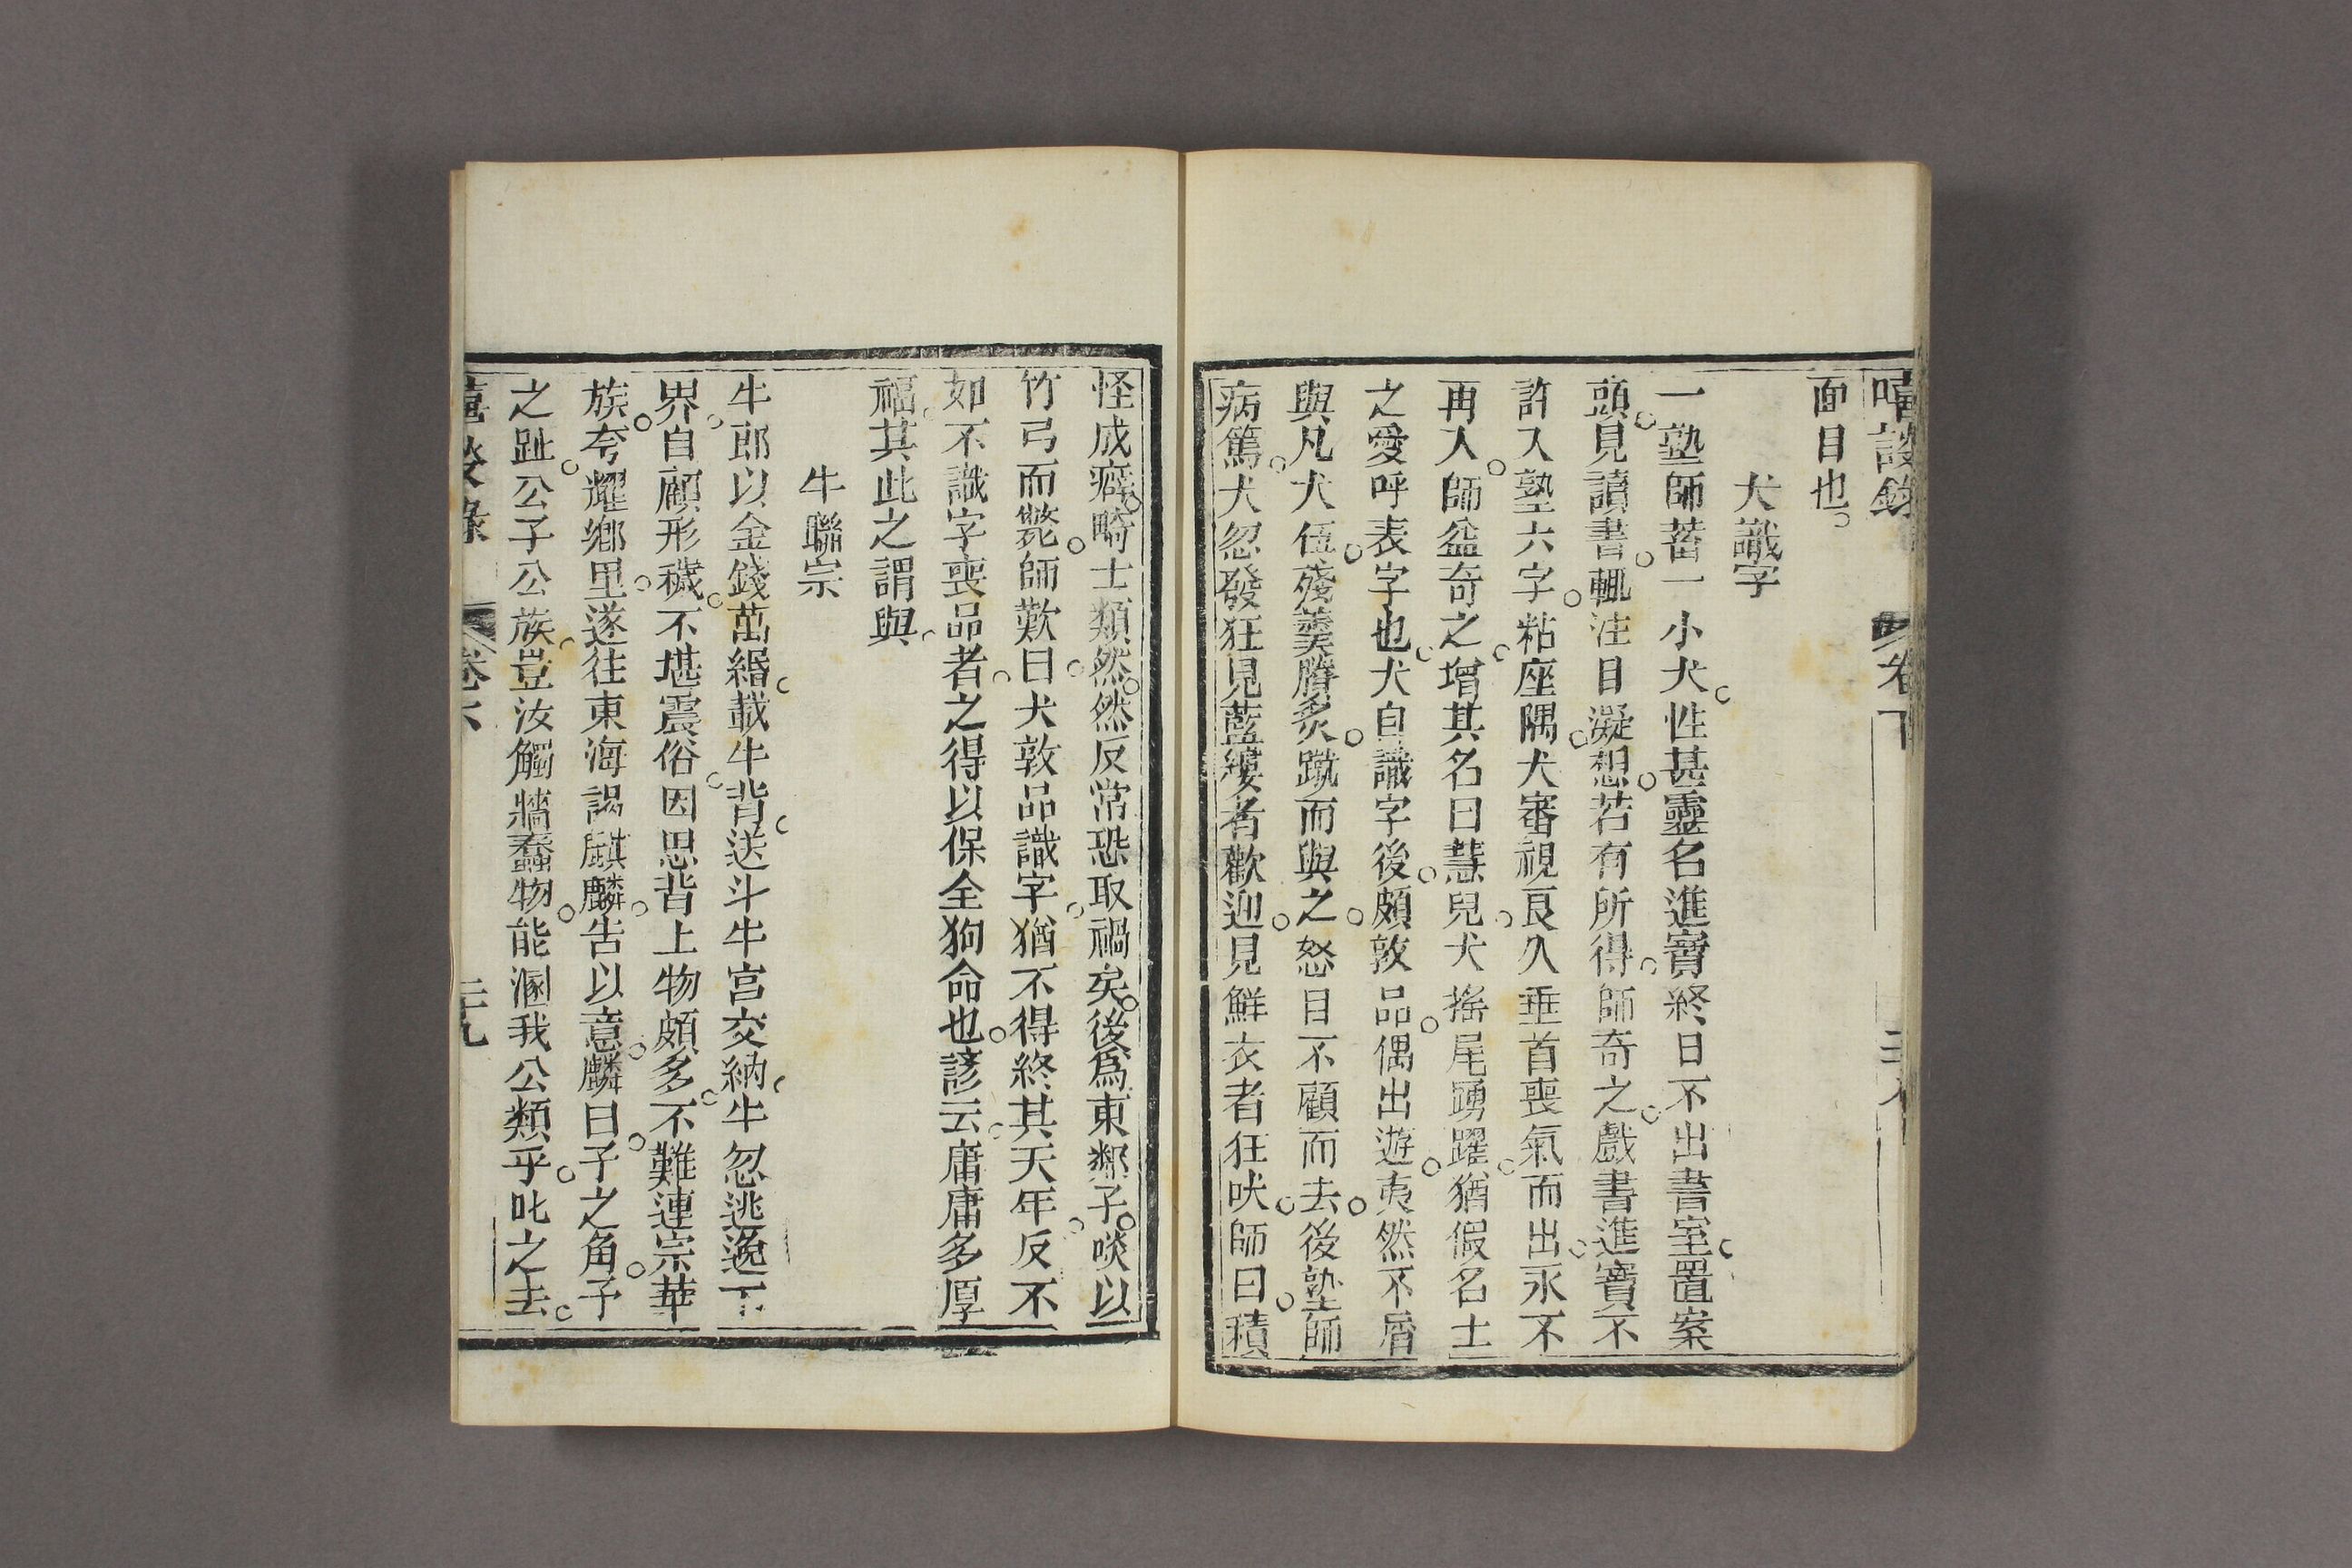 嘻談錄 卷下
面目也
犬識字
一塾師蓄一小犬性甚靈名進寶終日不出書室置案
頭見讀書輒注目凝想若有所得師奇之戲書進寶不
許入塾六字粘座隅犬審視良久垂首喪氣而出永不
再入師益奇之增其名曰慧兒犬搖尾踴躍猶假名士
之愛呼表字也犬自識字後頗敦品偶出遊夷然不屑
與凡犬伍殘羹膡炙蹴而與之怒目不顧而去後塾師
病篤犬忽發狂見藍縷者歡迎見鮮衣者狂吠師曰積
怪成癖畸士類然然反常恐取禍矣後為東鄰子啖以
竹弓而斃師歎曰犬敦品識字猶不得終其天年反不
如不識字喪品者之得以保全狗命也諺云庸庸多厚
福其此之謂與
牛聯宗
牛郎以金錢萬緡載牛背送斗牛宮交納牛忽逃逸下
界自顧形穢不堪震俗因思背上物頗多不難連宗華
族夸耀鄉里遂往東海謁麒麟告以意麟曰子之角子
之趾公子公族豈汝觸牆蠢物能溷我公類乎叱之去
嘻談錄 卷下 二十九